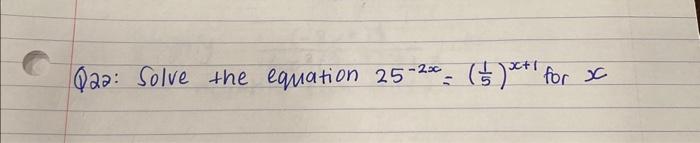 Q22: Solve the equation 25^{-2x} = (1/5)^{x+1} for x